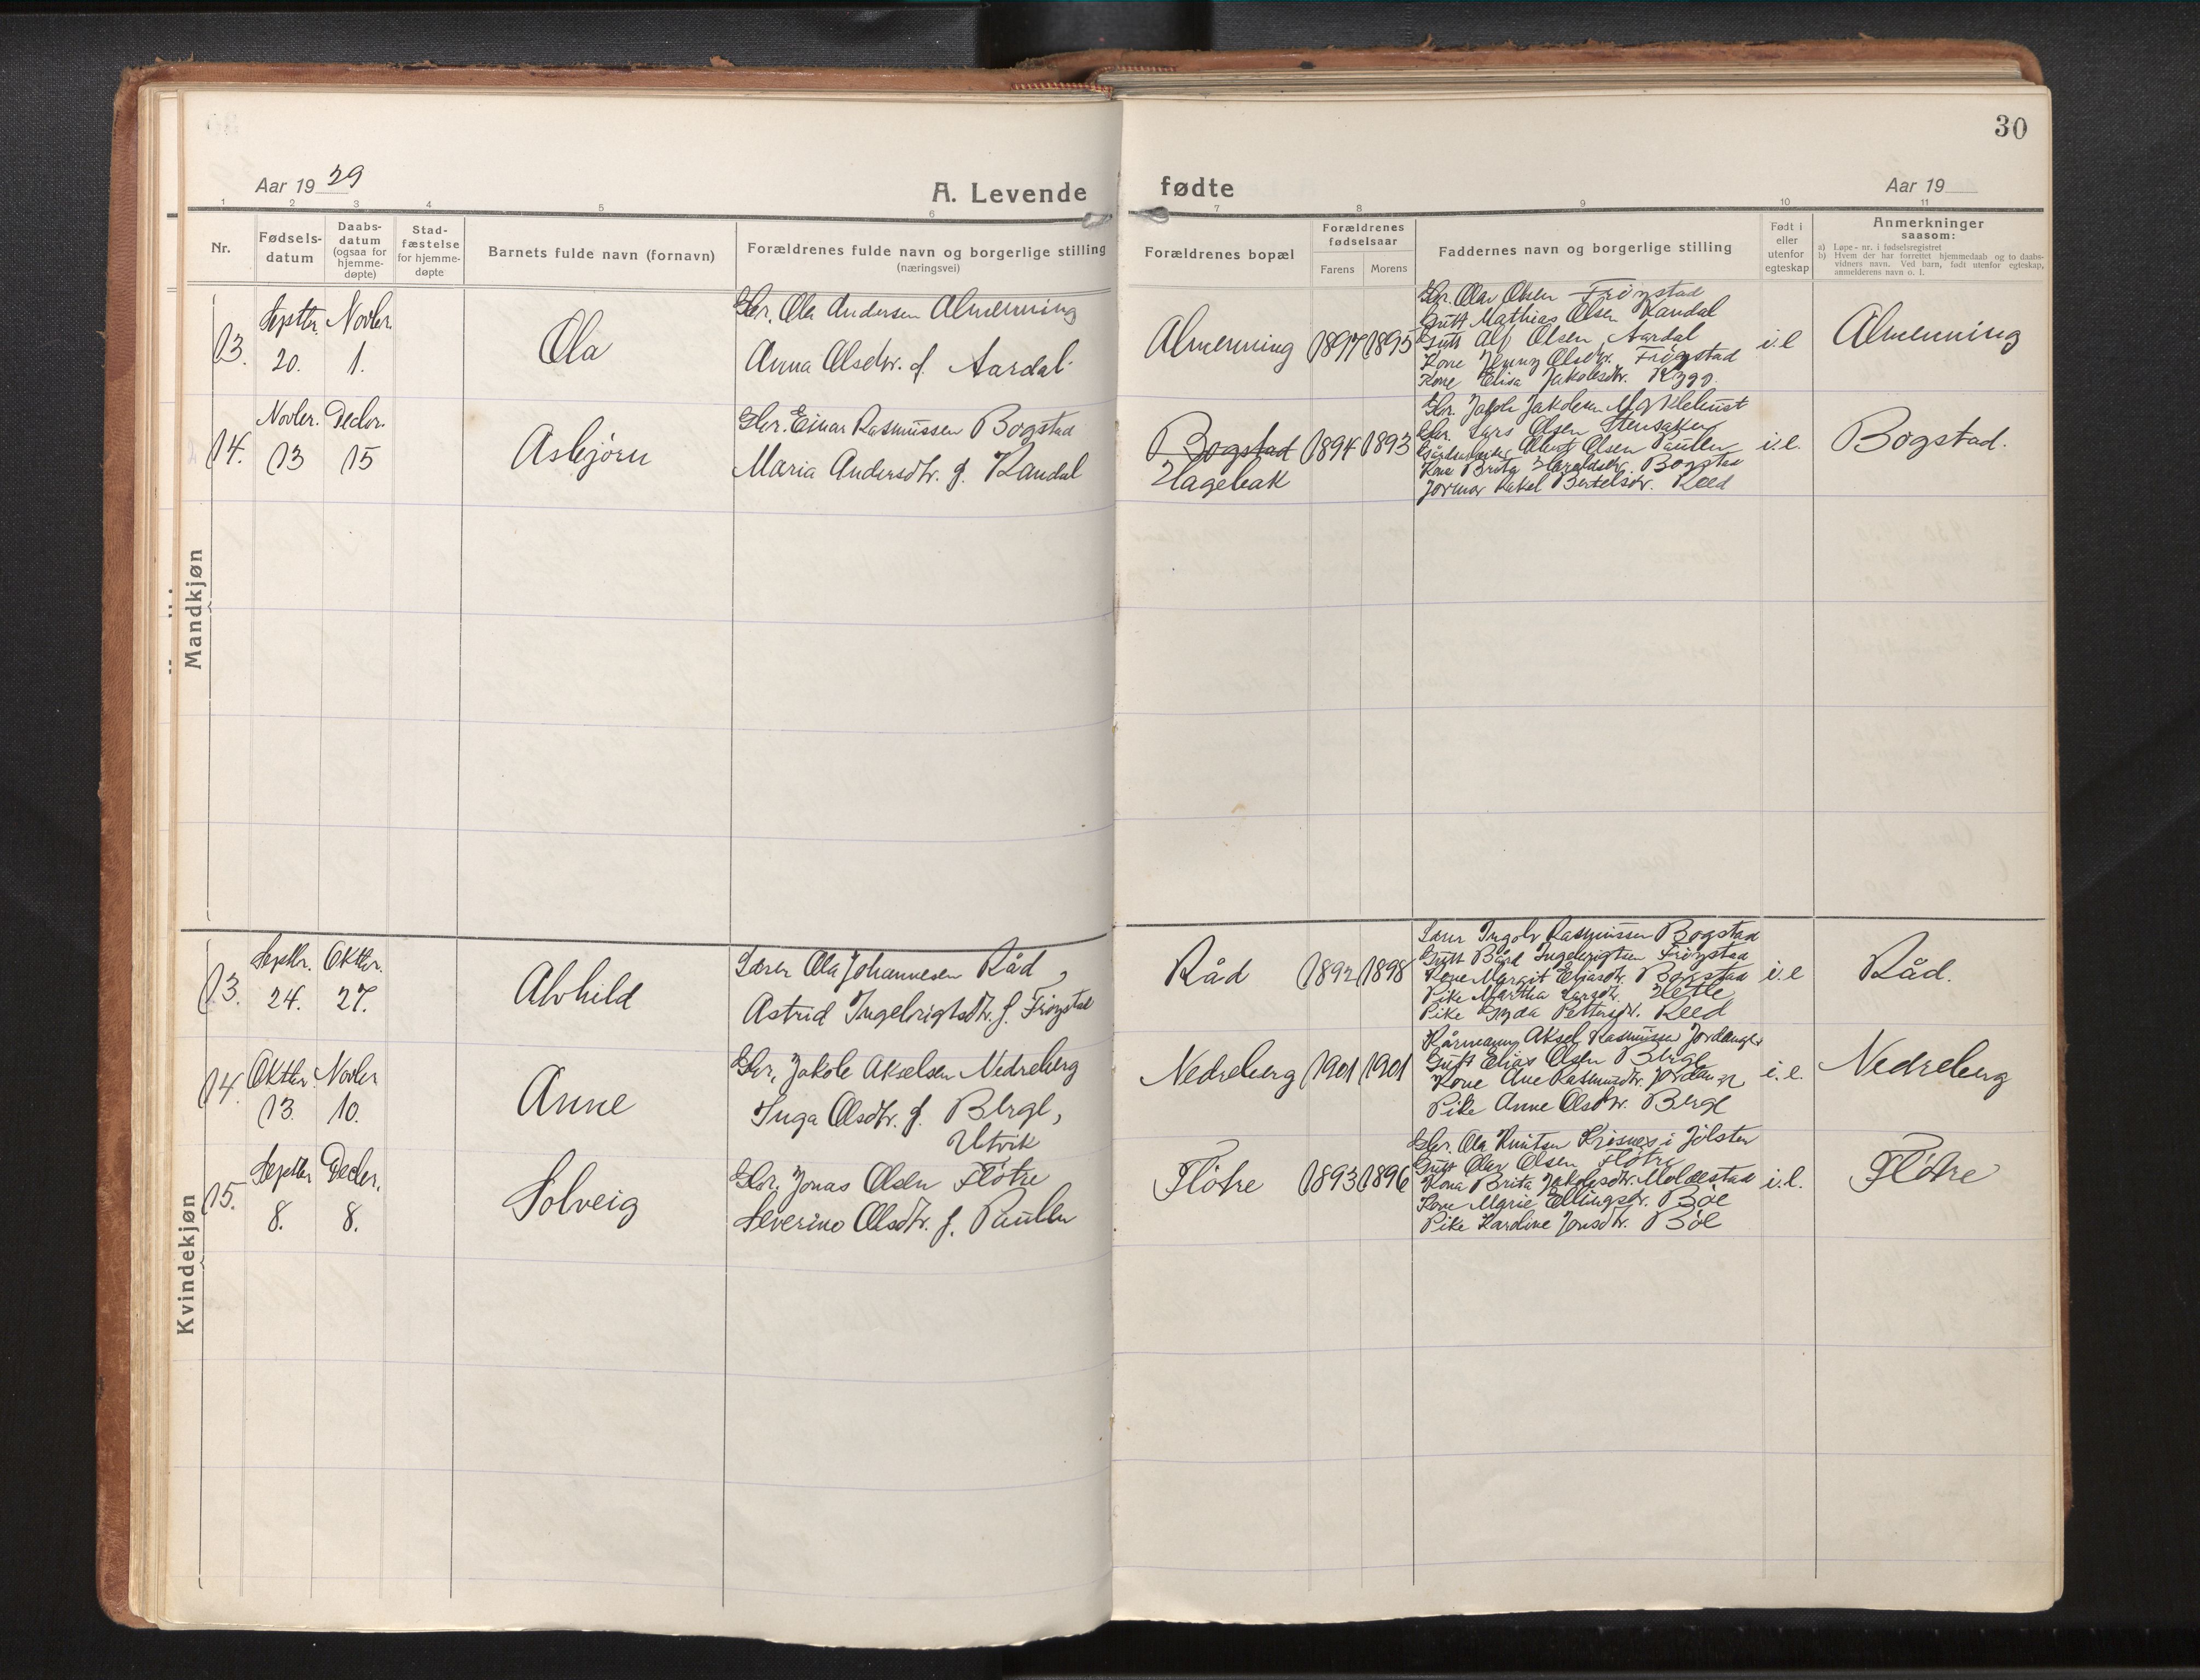 30
Aar 1929
A. Levende
fødte
Aar 19
1 2 3 4 5 6 7 8 9 10 11
Nr.
Fødsels-
datum
Daabs-
datum
(ogsaa for
hjemme-
døpte)
Stad-
fæstelse
for hjemme-
døpte
Barnets fulde navn (fornavn)
Forældrenes fulde navn og borgerlige stilling
(næringsvei)
Forældrenes bopæl
Forældrenes
fødselsaar
Farens Morens
Faddernes navn og borgerlige stilling
Født i
eller
utenfor
egteskap
Anmerkninger
saasom:
a) Løpe-nr. i fødselsregistret
b) Hvem der har forrettet hjemmedaab og to daabs-
vidners navn. Ved barn, født utenfor egteskap,
anmelderens navn o. l.
Mandkjøn
13.
Septbr.
20.
Novbr.
1.
Ola
Gbr. Ola Andersen Almenning
Anna Olsdtr. f. Aardal.
Almenning
1897 1895
Gbr. Olav Olsen Frøystad
Gutt Mathias Olsen Kandal
Gutt Alf Olsen Aardal
Kone Jenny Olsdtr. Frøystad
Kone Elisa Jakobsdtr. Rygg.
i. e
Almenning
14.
Novbr.
13
Decbr.
15
Asbjørn
Gbr. Einar Rasmussen Bogstad
Maria Andersdtr. f. Kandal
Bogstad
Hagebak
1894 1893
Gbr. Jakob Jakobsen Myklebust
Gbr. Lars Olsen Stensaker
Albert Olsen Paulen
Kone Brita Haraldsdtr. Bogstad
Jormor Rakel Bertelsdtr. Reed
i. e.
Bogstad.
Kvindekjøn
13.
Septbr.
24.
Oktbr.
27.
Alvhild
Lærer Ola Johannesen Råd,
Astrid Ingebrigtsdtr. f. Frøystad
Råd
1892 1898
Lærer Ingolv Rasmussen Bogstad
Gutt Bård Ingebrigtsen Frøystad
Kone Margit Eliasdtr. Bogstad
Pike Martha Larsdtr. Hetle
Pike Gyda Pettersdtr. Reed
i. e
Råd.
14.
Oktbr.
13
Novbr
10.
Anne
Gbr. Jakob Akselsen Nedreberg
Inga Olsdtr. f. Berge,
Utvik
Nedreberg
1901 1901
Kårmann Aksel Rasmussen Jordanger
Gutt Elias Olsen Berge
Kone Ane Rasmusdtr. Jordanger
Pike Anne Olsdtr. Berge
i. e.
Nedreberg
15.
Septbr
8.
Decbr.
8.
Solveig
Gbr. Jonas Olsen Fløtre
Severine Olsdtr. f. Paulen
Fløtre
1893 1896
Gbr. Ola Knutsen Årsnes i Jølster
Gutt Olav Olsen Fløtre
Kona Brita Jakobsdtr. Moldestad
Kone Marie Ellingsdtr. Bøe
Pike Karoline Jonsdtr. Bøe
i. e.
Fløtre